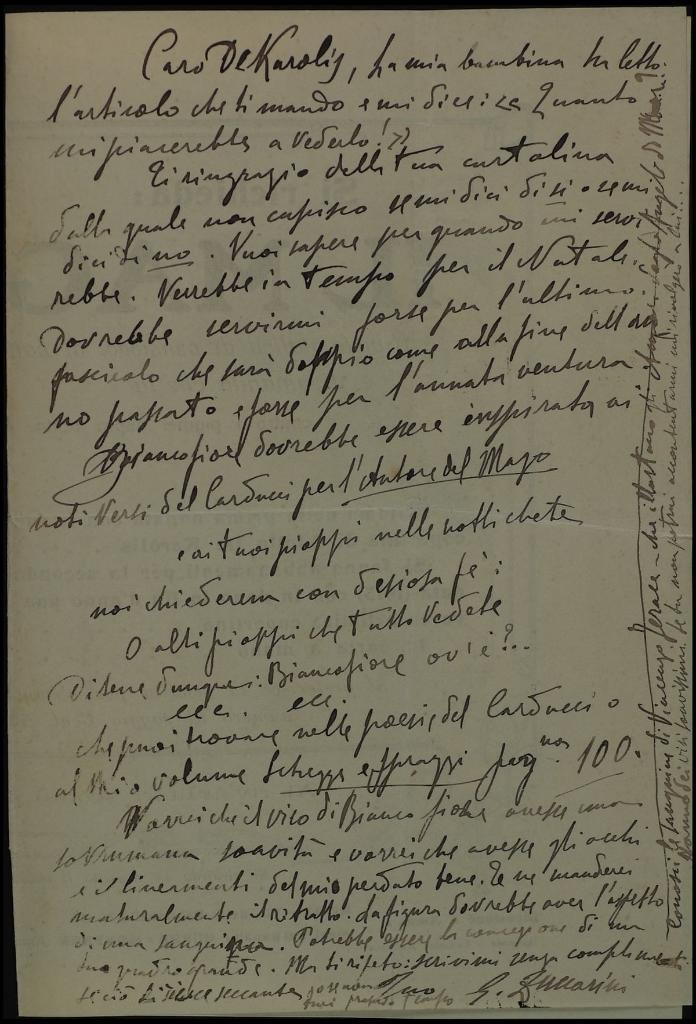 Caro De Karolis, La mia bambina ha letto
l'articolo che ti mando e mi dice: << Quanto
mi piacerebbe a vederlo! >>
Ti ringrazio della tua cartolina
dalla quale non capisco se mi dici di si o se mi
dici di no. Vuoi sapere per quando mi servi
rebbe. Verrebbe in tempo per il Natale.
Dovrebbe servirmi forse per l'ultimo
fascicolo che sarà doppio come alla fine dell'an
no passato e forse per l'annata ventura
Biancofiore dovrebbe essere inspirata ai
noti versi del Carducci per l'Autore del Mago
e ai tuoi pioppi nelle notti chete
noi chiederem con desiosa fè:
O alti pioppi che tutto vedete
Ditene dunque: Biancofiore ov'è?..
ecc. ecc.
che puoi trovare nelle poesie del Carducci o
al mio volume Schegge e sprazzi pag. 100.
Vorrei che il viso di Biancofiore avesse una
sovrumana soavità e vorrei che avesse gli occhi
e i lineamenti del mio perduto bene. Te ne manderei
naturalmente il ritratto. La figura dovrebbe aver l'aspetto
di una sanguigna. Potrebbe essere la concezione di un
tuo quadro grande. Ma ti ripeto: scrivimi senza complimenti
se ciò ti riesce seccante
Tuo G. Zuccarini
Conosci le sanguigne di Vincenzo Gerace - che illustrano
se tu non potrai accontentarmi mi rivolgerò a lui....